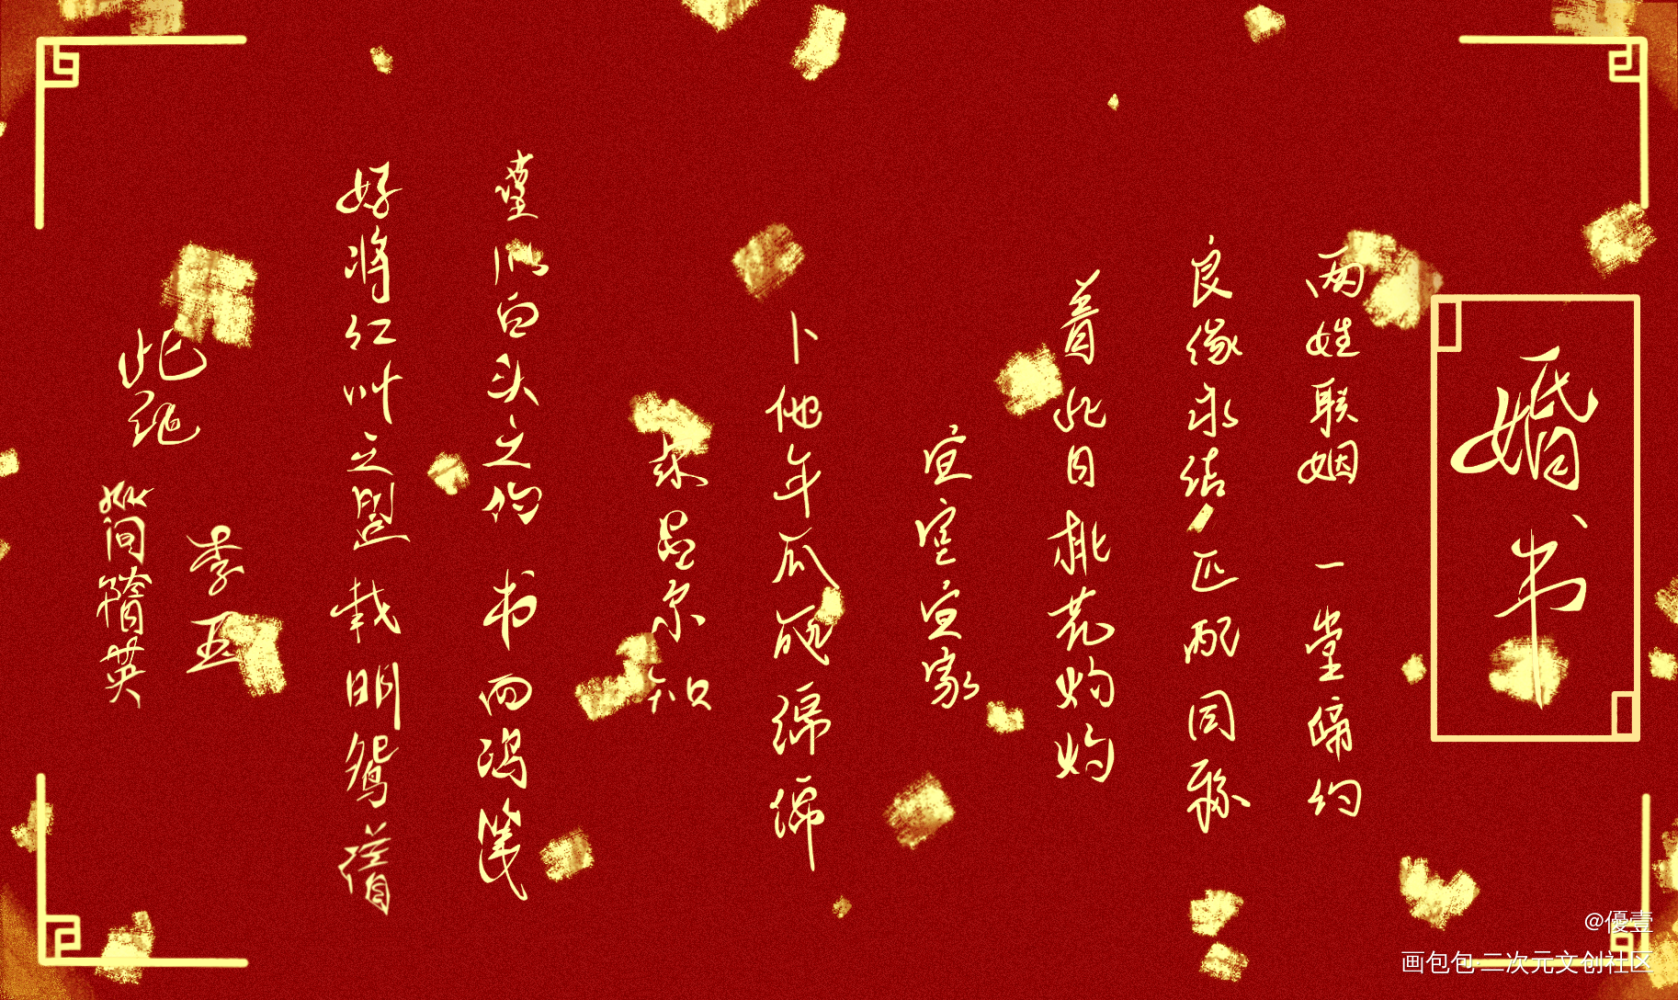 婚书
两姓联姻 一堂缔约
良缘永结 匹配同称
看此日桃花灼灼
宜室宜家
卜他年瓜瓞绵绵
昌尔炽
谨以白头之约 书向鸿笺
好将红叶之盟 载明鸳谱
此证
李
英
@優壹
画包包·二次元文创社区